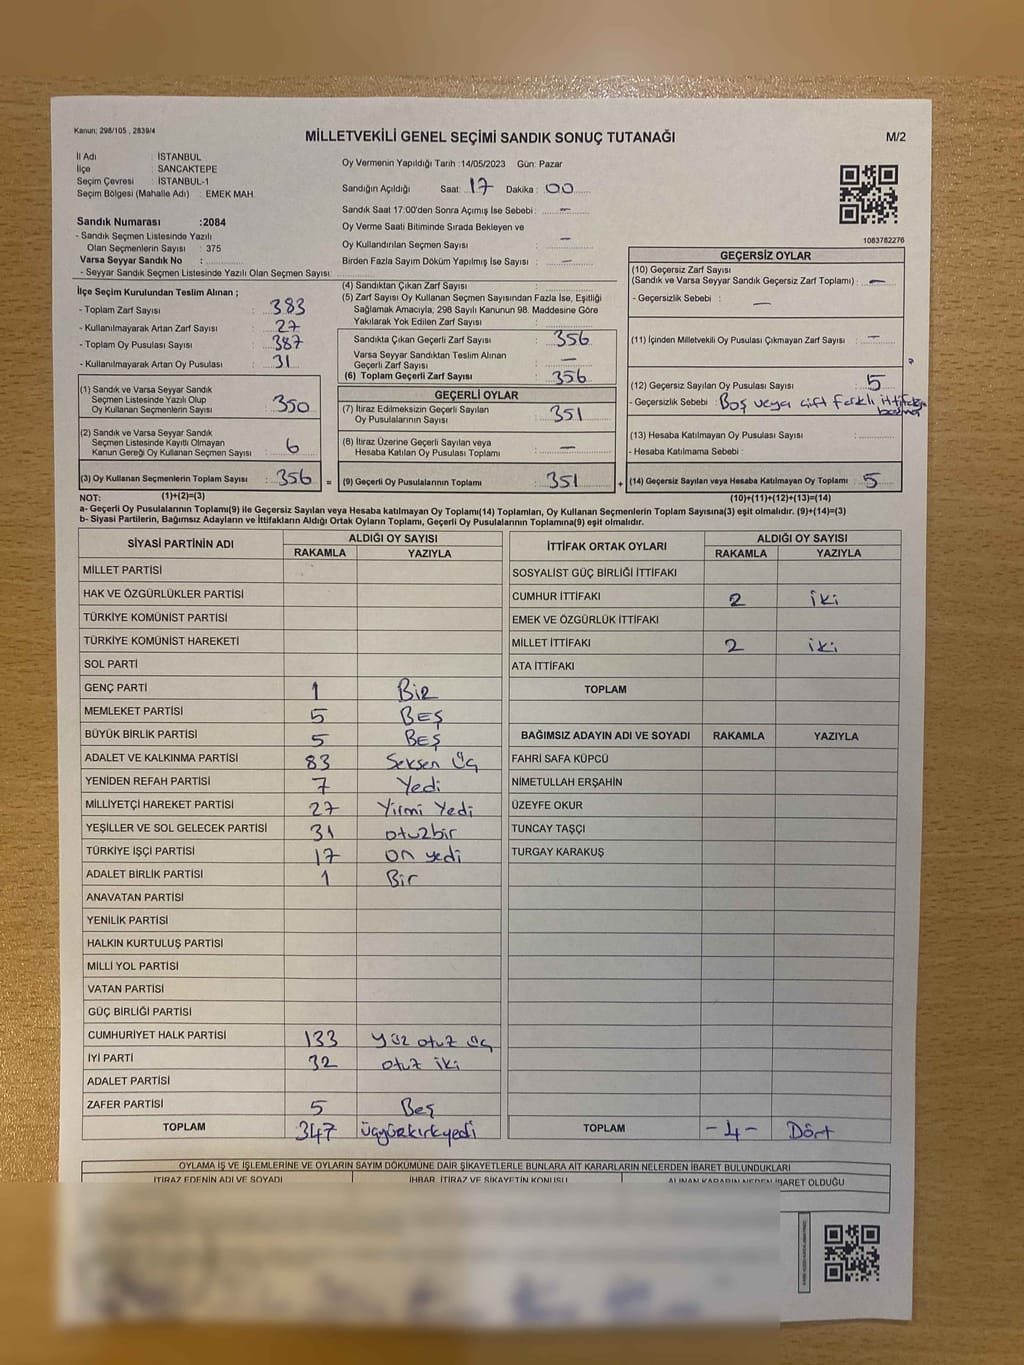 Kanun; 298/105 , 2839/4
MİLLETVEKİLİ GENEL SEÇİMİ SANDIK SONUÇ TUTANAĞI
M/2
İl Adı : İSTANBUL
İlçe : SANCAKTEPE
Seçim Çevresi : İSTANBUL-1
Seçim Bölgesi (Mahalle Adı) : EMEK MAH.
Sandık Numarası :2084
- Sandık Seçmen Listesinde Yazılı
Olan Seçmenlerin Sayısı : 375
Varsa Seyyar Sandık No :
- Seyyar Sandık Seçmen Listesinde Yazılı Olan Seçmen Sayısı:
Oy Vermenin Yapıldığı Tarih :14/05/2023 Gün: Pazar
Sandığın Açıldığı Saat: 17 Dakika : 00
Sandık Saat 17:00'den Sonra Açımış İse Sebebi : –
Oy Verme Saati Bitiminde Sırada Bekleyen ve
Oy Kullandırılan Seçmen Sayısı : –
Birden Fazla Sayım Döküm Yapılmış İse Sayısı : –
1083782276
İlçe Seçim Kurulundan Teslim Alınan ;
- Toplam Zarf Sayısı : 383
- Kullanılmayarak Artan Zarf Sayısı : 27
- Toplam Oy Pusulası Sayısı : 387
- Kullanılmayarak Artan Oy Pusulası : 31
(1) Sandık ve Varsa Seyyar Sandık
Seçmen Listesinde Yazılı Olup
Oy Kullanan Seçmenlerin Sayısı : 350
(2) Sandık ve Varsa Seyyar Sandık
Seçmen Listesinde Kayıtlı Olmayan
Kanun Gereği Oy Kullanan Seçmen Sayısı : 6
(3) Oy Kullanan Seçmenlerin Toplam Sayısı : 356 =
(4) Sandıktan Çıkan Zarf Sayısı :
(5) Zarf Sayısı Oy Kullanan Seçmen Sayısından Fazla İse, Eşitliği
Sağlamak Amacıyla; 298 Sayılı Kanunun 98. Maddesine Göre
Yakılarak Yok Edilen Zarf Sayısı :
Sandıkta Çıkan Geçerli Zarf Sayısı : 356
Varsa Seyyar Sandıktan Teslim Alınan
Geçerli Zarf Sayısı : –
(6) Toplam Geçerli Zarf Sayısı : 356
GEÇERLİ OYLAR
(7) İtiraz Edilmeksizin Geçerli Sayılan
Oy Pusulalarının Sayısı : 351
(8) İtiraz Üzerine Geçerli Sayılan veya
Hesaba Katılan Oy Pusulası Toplamı : –
(9) Geçerli Oy Pusulalarının Toplamı : 351 +
GEÇERSİZ OYLAR
(10) Geçersiz Zarf Sayısı
(Sandık ve Varsa Seyyar Sandık Geçersiz Zarf Toplamı) : –
- Geçersizlik Sebebi : –
(11) İçinden Milletvekili Oy Pusulası Çıkmayan Zarf Sayısı : –
(12) Geçersiz Sayılan Oy Pusulası Sayısı : 5
- Geçersizlik Sebebi : Boş veya çift farklı ittifağa
basma
(13) Hesaba Katılmayan Oy Pusulası Sayısı :
- Hesaba Katılmama Sebebi :
(14) Geçersiz Sayılan veya Hesaba Katılmayan Oy Toplamı : 5
NOT: (1)+(2)=(3) (10)+(11)+(12)+(13)=(14)
a- Geçerli Oy Pusulalarının Toplamı(9) ile Geçersiz Sayılan veya Hesaba Katılmayan Oy Toplamı(14) Toplamları, Oy Kullanan Seçmenlerin Toplam Sayısına(3) eşit olmalıdır. (9)+(14)=(3)
b- Siyasi Partilerin, Bağımsız Adayların ve İttifakların Aldığı Ortak Oyların Toplamı, Geçerli Oy Pusulalarının Toplamına(9) eşit olmalıdır.
SİYASİ PARTİNİN ADI ALDIĞI OY SAYISI
RAKAMLA YAZIYLA
MİLLET PARTİSİ
HAK VE ÖZGÜRLÜKLER PARTİSİ
TÜRKİYE KOMÜNİST PARTİSİ
TÜRKİYE KOMÜNİST HAREKETİ
SOL PARTİ
GENÇ PARTİ 1 Bir
MEMLEKET PARTİSİ 5 BEŞ
BÜYÜK BİRLİK PARTİSİ 5 BEŞ
ADALET VE KALKINMA PARTİSİ 83 Seksen üç
YENİDEN REFAH PARTİSİ 7 Yedi
MİLLİYETÇİ HAREKET PARTİSİ 27 Yirmi Yedi
YEŞİLLER VE SOL GELECEK PARTİSİ 31 otuzbir
TÜRKİYE İŞÇİ PARTİSİ 17 on yedi
ADALET BİRLİK PARTİSİ 1 Bir
ANAVATAN PARTİSİ
YENİLİK PARTİSİ
HALKIN KURTULUŞ PARTİSİ
MİLLİ YOL PARTİSİ
VATAN PARTİSİ
GÜÇ BİRLİĞİ PARTİSİ
CUMHURİYET HALK PARTİSİ 133 yüz otuz üç
İYİ PARTİ 32 otuz iki
ADALET PARTİSİ
ZAFER PARTİSİ 5 Beş
TOPLAM 347 üçyüzkırkyedi
İTTİFAK ORTAK OYLARI ALDIĞI OY SAYISI
RAKAMLA YAZIYLA
SOSYALİST GÜÇ BİRLİĞİ İTTİFAKI
CUMHUR İTTİFAKI 2 iki
EMEK VE ÖZGÜRLÜK İTTİFAKI
MİLLET İTTİFAKI 2 iki
ATA İTTİFAKI
TOPLAM
BAĞIMSIZ ADAYIN ADI VE SOYADI RAKAMLA YAZIYLA
FAHRİ SAFA KÜPCÜ
NİMETULLAH ERŞAHİN
ÜZEYFE OKUR
TUNCAY TAŞÇI
TURGAY KARAKUŞ
TOPLAM -4- Dört
OYLAMA İŞ VE İŞLEMLERİNE VE OYLARIN SAYIM DÖKÜMÜNE DAİR ŞİKAYETLERLE BUNLARA AİT KARARLARIN NELERDEN İBARET BULUNDUKLARI
İTİRAZ EDENİN ADI VE SOYADI İHBAR, İTİRAZ VE ŞİKAYETİN KONUSU ALINAN KARARIN NEDEN İBARET OLDUĞU